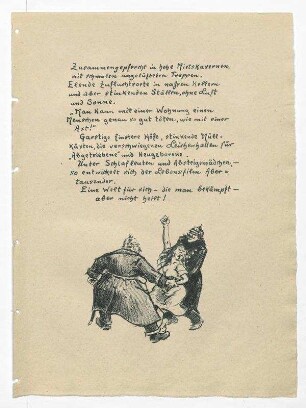 Zusammengepfercht in hohe Mietskasernen
mit schmalen ungelüfteten Treppen.
Elende Zufluchtsorte in nassen Kellern
und über stinkenden Ställen, ohne Luft
und Sonne.
„Man kann mit einer Wohnung einen
Menschen genau so gut töten, wie mit einer
Axt!“
Garstige finstere Höfe, stinkende Müll-
kästen, die verschwiegenen Leichenhallen für
„Abgetriebene“ und Neugeborene.
Unter Schlafleuten und Absteigemädchen,—
so entwickelt sich der Lebensfilm Aber-
tausender.
Eine Welt für sich — die man bekämpft —
aber nicht heilt!